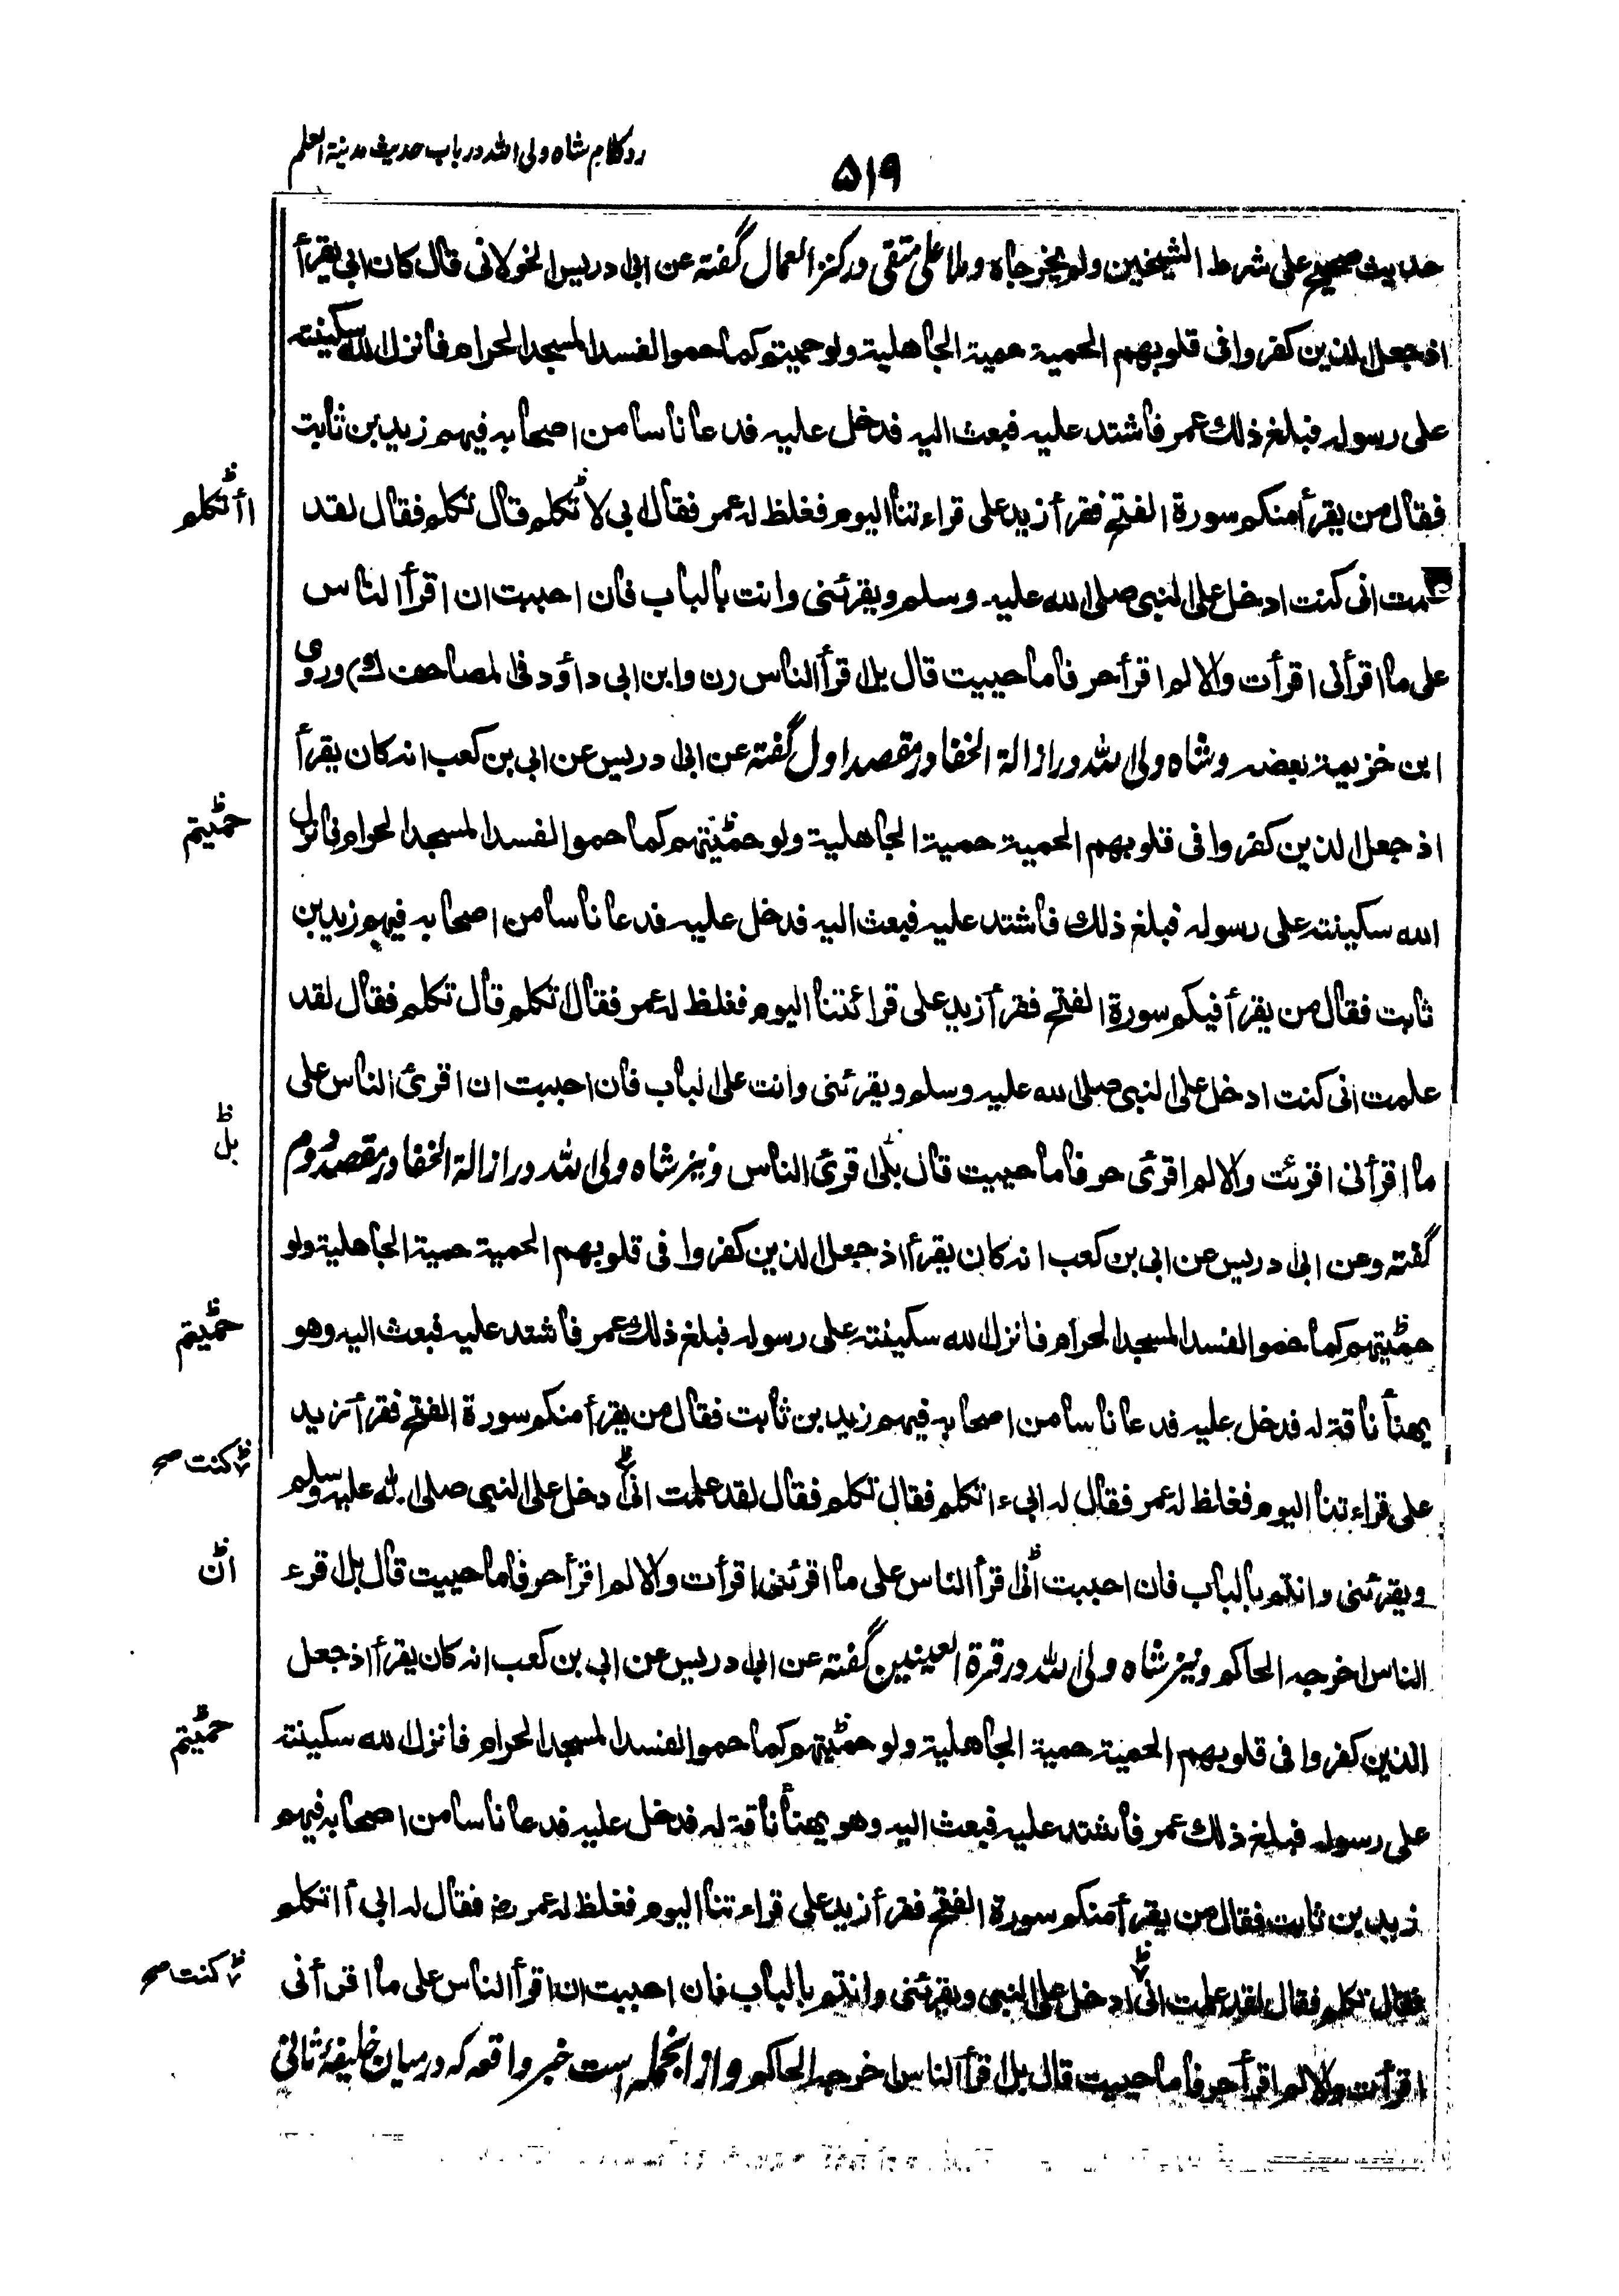 رد کلام شاه ولی الله در باب حدیث مدینة العلم
۵۱۹
حدیث صحیح علی شرط الشیخین ولم یخرجاه وملا علی متقی در کنز العمال گفته عن ابی ادریس الخولانی قال کان ابی یقرأ
اذ جعل الذین کفروا فی قلوبهم الحمیة حمیة الجاهلیة ولو حمیتم کما حموا لفسد المسجد الحرام فانزل الله سکینته
علی رسوله فبلغ ذلک عمر فاشتد علیه فبعث الیه فدخل علیه فدعا ناسا من اصحابه فیهم زید بن ثابت
فقال من یقرأ منکم سورة الفتح فقرأ زید علی قراءتنا الیوم فغلظ له عمر فقال ابی لا تکلم قال تکلم فقال لقد
أأتکلم ظ
علمت انی کنت ادخل علی النبی صلی الله علیه وسلم ویقرئنی وانت بالباب فان احببت ان اقرأ الناس
علی ما اقرأنی اقرأت والا لم اقرأ حرفا ما حییت قال بل اقرأ الناس (ن وابن ابی داؤد فی المصاحف ک) وروی
ابن خزیمة بعضه وشاه ولی الله در ازالة الخفا در مقصد اول گفته عن ابی ادریس عن ابی بن کعب انه کان یقرأ
اذ جعل الذین کفروا فی قلوبهم الحمیة حمیة الجاهلیة ولو حمیتهم کما حموا لفسد المسجد الحرام فانزل
حمیتم ظ
الله سکینته علی رسوله فبلغ ذلک فاشتد علیه فبعث الیه فدخل علیه فدعا ناسا من اصحابه فیهم زید بن
ثابت فقال من یقرأ فیکم سورة الفتح فقرأ زید علی قرائتنا الیوم فغلظ له عمر فقال اتکلم قال تکلم فقال لقد
علمت انی کنت ادخل علی النبی صلی الله علیه وسلم ویقرئنی وانت علی الباب فان احببت ان اقرئ الناس علی
بل ظ
ما اقرأنی اقرئت والا لم اقرئ حرفا ما حییت قال بلی اقرئ الناس ونیز شاه ولی الله در ازالة الخفا در مقصد دوم
گفته وعن ابی ادریس عن ابی بن کعب انه کان یقرأ اذ جعل الذین کفروا فی قلوبهم الحمیة حمیة الجاهلیة ولو
حمیتهم کما حموا لفسد المسجد الحرام فانزل الله سکینته علی رسوله فبلغ ذلک عمر فاشتد علیه فبعث الیه وهو
حمیتم ظ
یهنأ ناقة له فدخل علیه فدعا ناسا من اصحابه فیهم زید بن ثابت فقال من یقرأ منکم سورة الفتح فقرأ زید
کنت صح
علی قراءتنا الیوم فغلظ له عمر فقال له ابیء اتکلم فقال تکلم فقال لقد علمت انی ادخل علی النبی صلی الله علیه وسلم
ویقرئنی وانتم بالباب فان احببت انی اقرأ الناس علی ما اقرئنی اقرأت والا لم اقرأ حرفا ما حییت قال بل اقرء
ان ظ
الناس اخرجه الحاکم ونیز شاه ولی الله در قرة العینین گفته عن ابی ادریس عن ابی بن کعب انه کان یقرأ اذ جعل
الذین کفروا فی قلوبهم الحمیة حمیة الجاهلیة ولو حمیتهم کما حموا لفسد المسجد الحرام فانزل الله سکینته
حمیتم ظ
علی رسوله فبلغ ذلک عمر فاشتد علیه فبعث الیه وهو یهنأ ناقة له فدخل علیه فدعا ناسا من اصحابه فیهم
زید بن ثابت فقال من یقرأ منکم سورة الفتح فقرأ زید علی قراءتنا الیوم فغلظ له عمر رض فقال له ابی أاتکلم
فقال تکلم فقال لقد علمت انی ادخل علی النبی ویقرئنی وانتم بالباب فان احببت ان اقرأ الناس علی ما اقرأنی
کنت صح
اقرأت والا لم اقرأ حرفا ما حییت قال بل اقرأ الناس اخرجه الحاکم واز انجمله است خبر واقعه که درمیان خلیفهٔ ثانی